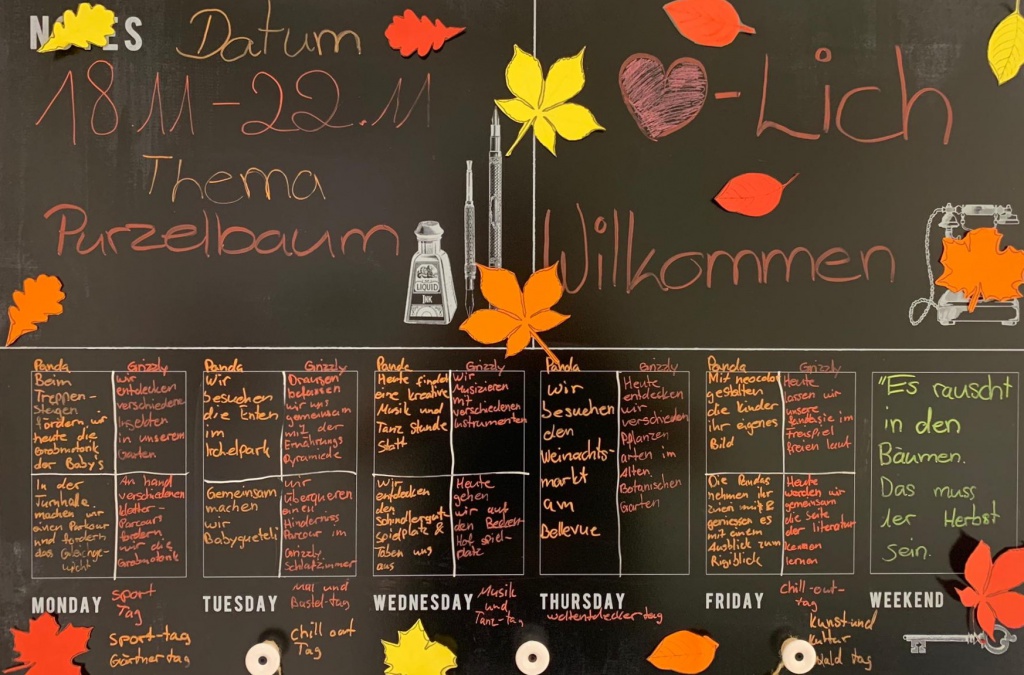 NOTES
Datum
18.11-22.11
Thema
Purzelbaum
♥-Lich
Wilkommen
LIQUID
INK
Panda
Beim
Treppen-
steigen
fördern wir
heute die
Grobmotorik
der Baby's
In der
Turnhalle
machen wir
einen Parkour
und fördern
das Gleichge-
wicht
Grizzly
wir
entdecken
verschiedene
Insekten
in unserem
Garten
An hand
verschiedenen
kletter-
Parcour
fördern
wir die
Grobmotorik
MONDAY
sport
Tag
sport-tag
Gärtner tag
Panda
Wir
besuchen
die Enten
im
Gemeinsam
machen
wir
Babyguetzli
Grizzly
Draussen
befassen
wir uns
gemeinsam
mit der
Ernährungs
Pyramiede
wir
überqueren
einen
Hinderniss
Parcour im
Grizzly
Schlafzimmer
TUESDAY
Mal und
Bastel-tag
chill out
Tag
Panda
Heute findet
eine kreative
Musik und
Tanz Stunde
statt
Wir
entdecken
den
spielplatz &
toben uns
aus
Grizzly
Wir
Musizieren
mit
verschiedenen
Instrumenten
Heute
gehen
wir auf
den
Hof spiel-
platz
WEDNESDAY
Musik
und
Tanz-tag
Panda
wir
besuchen
den
Weinachts-
markt
am
Bellevue
Grizzly
Heute
entdecken
wir
verschieden
Pflanzen
arten im
Alten
Botanischen
Garten
THURSDAY
weltentdecker tag
Panda
Mit neocolor
gestalten
die kinder
ihr eigenes
Bild
Die Pandas
nehmen ihr
zvieri mit &
geniessen es
mit einem
Ausblick zum
Rigiblick
Grizzly
Heute
lassen wir
unsere
fantasie im
Freispiel
freien lauf
Heute
werden wir
gemeinsam
die Seite
der literatur
kennen
lernen
FRIDAY
Chill-out-
tag
Kunst und
Kultur
Wald tag
"Es rauscht
in den
Bäumen.
Das muss
der Herbst
sein.
WEEKEND